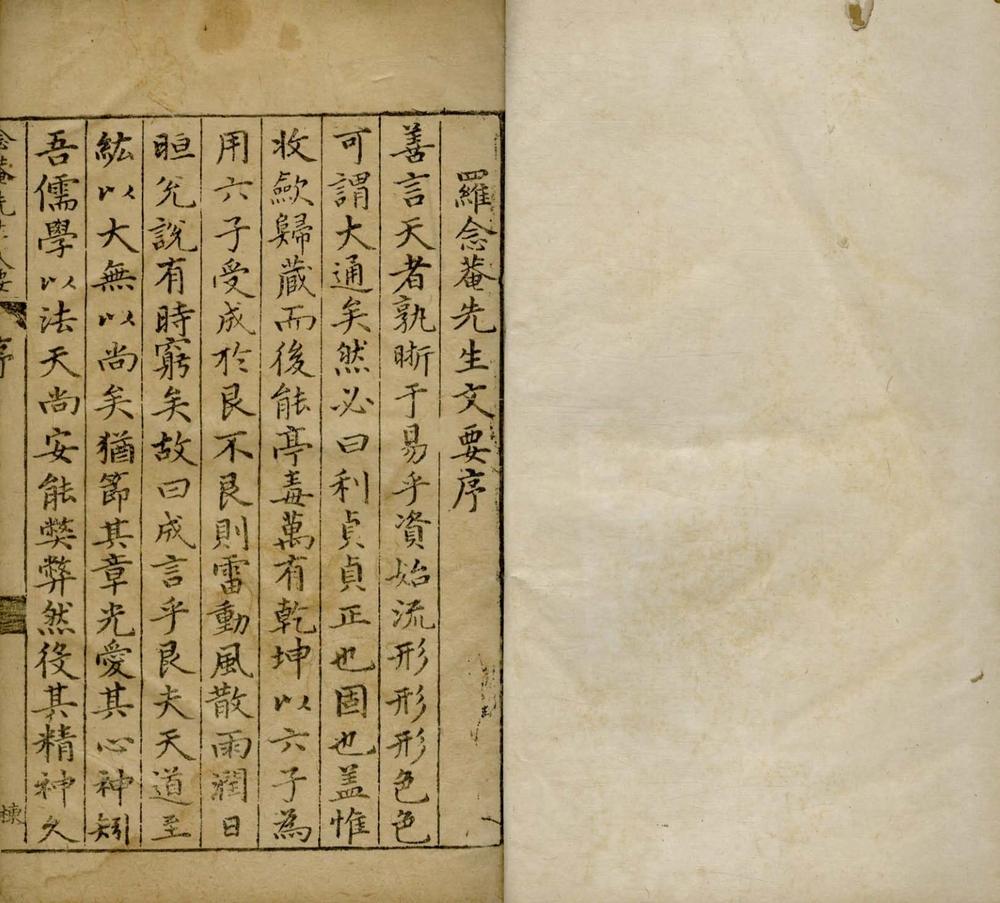 羅念菴先生文要序
善言天者孰晣于易乎資始流形形形色色
可謂大通矣然必曰利貞貞正也固也盖惟
收歛歸藏而後能亭毒萬有乾坤以六子為
用六子受成於艮不艮則雷動風散雨潤日
晅兊說有時窮矣故曰成言乎艮夫天道至
紘以大無以尚矣猶節其章光愛其心神矧
吾儒學以法天尚安能獘獘然役其精神久
念菴先生文要
序